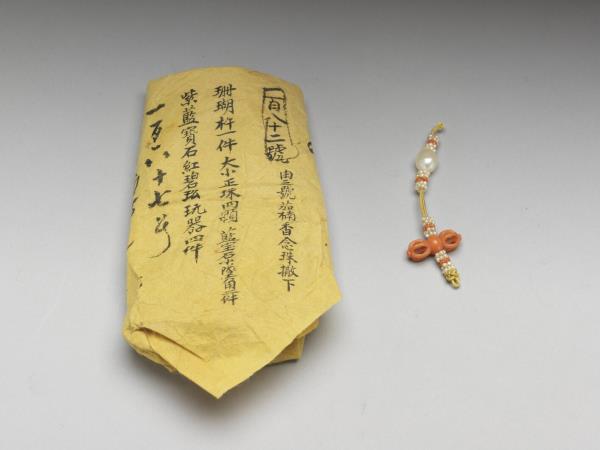 一百八十二號
由三號茄楠香念珠撤下
珊瑚杵一件大小正珠四顆藍宝石墜角一件
紫藍寶石紅碧玹玩器四件
一百八十七号